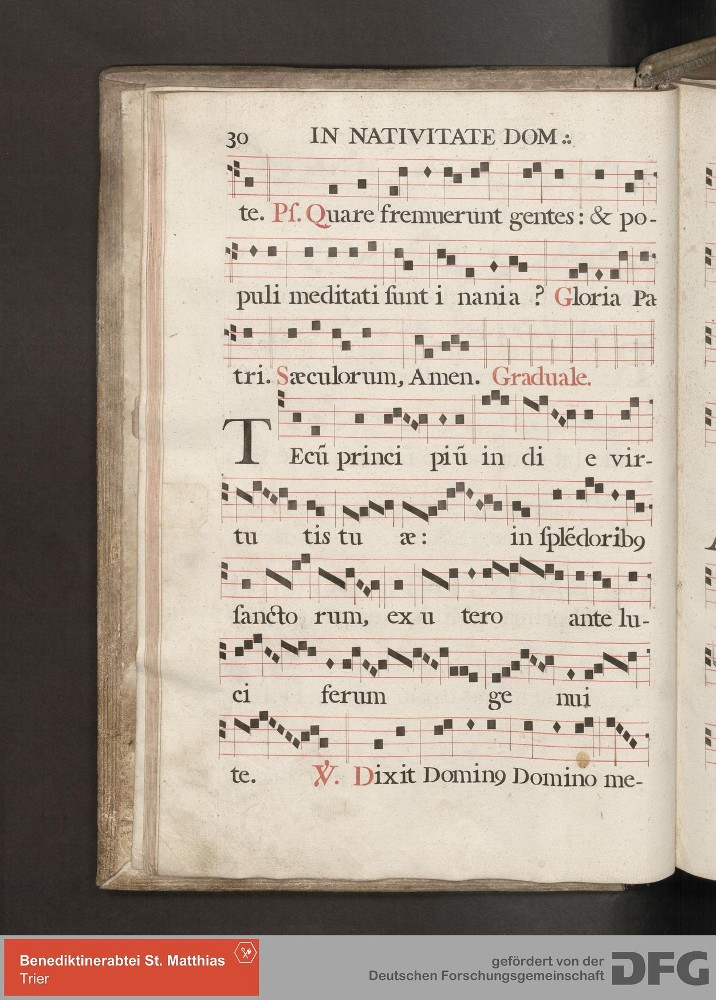 30 IN NATIVITATE DOM.:.
te. Pſ. Quare fremuerunt gentes: & po-
puli meditati ſunt i nania ? Gloria Pa
tri. Sæculorum, Amen. Graduale.
TEcũ princi piũ in di e vir-
tu tis tu æ: in ſplẽdoribꝯ
ſancto rum, ex u tero ante lu-
ci ferum ge nui
te. ℣. Dixit Dominꝯ Domino me-
Benediktinerabtei St. Matthias
Trier
gefördert von der
Deutschen Forschungsgemeinschaft DFG